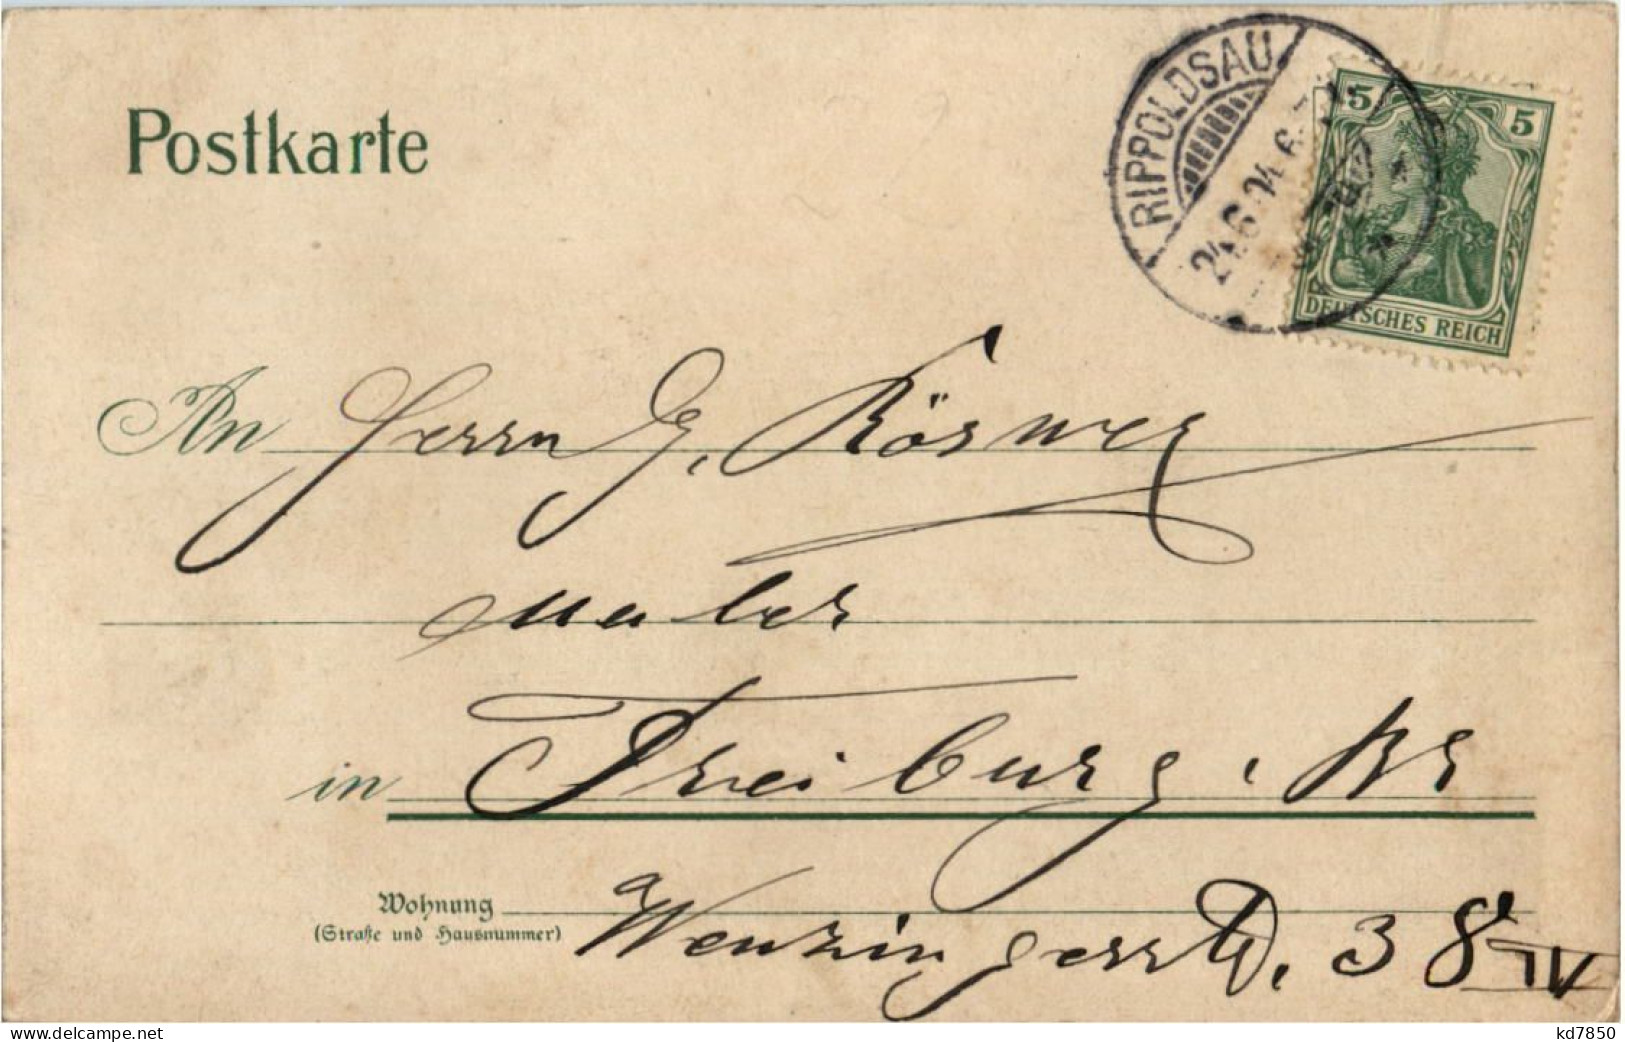 Postkarte
RIPPOLDSAU
24.6.04. 6-7N.
5 5
DEUTSCHES REICH
An Herrn G. Rösner
Maler
in Freiburg i. Br
Wohnung
(Straße und Hausnummer)
Wenzingerstr. 38 IV
www.delcampe.net
kd7850